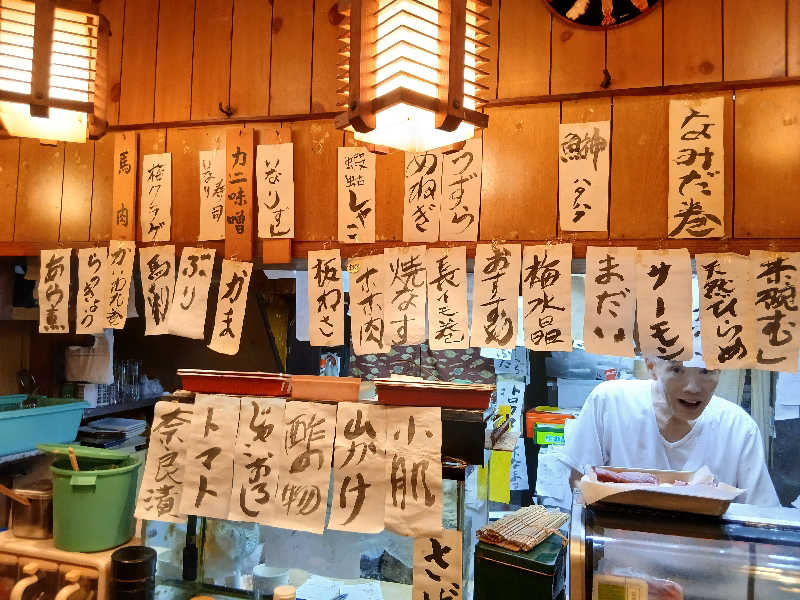 馬肉
梅クラゲ
いなり寿司
カニ味噌
いなりずし
蝦蛄しゃこ
めねぎ
うずら
なみだ巻
あら煮
らっきょ
馬刺
ぶり
かま
板わさ
ホホ肉
焼なす
長いも巻
梅水晶
まだい
サーモン
天然ひらめ
茶碗むし
奈良漬
トマト
じゃおろし
酢の物
山かけ
小肌
さば